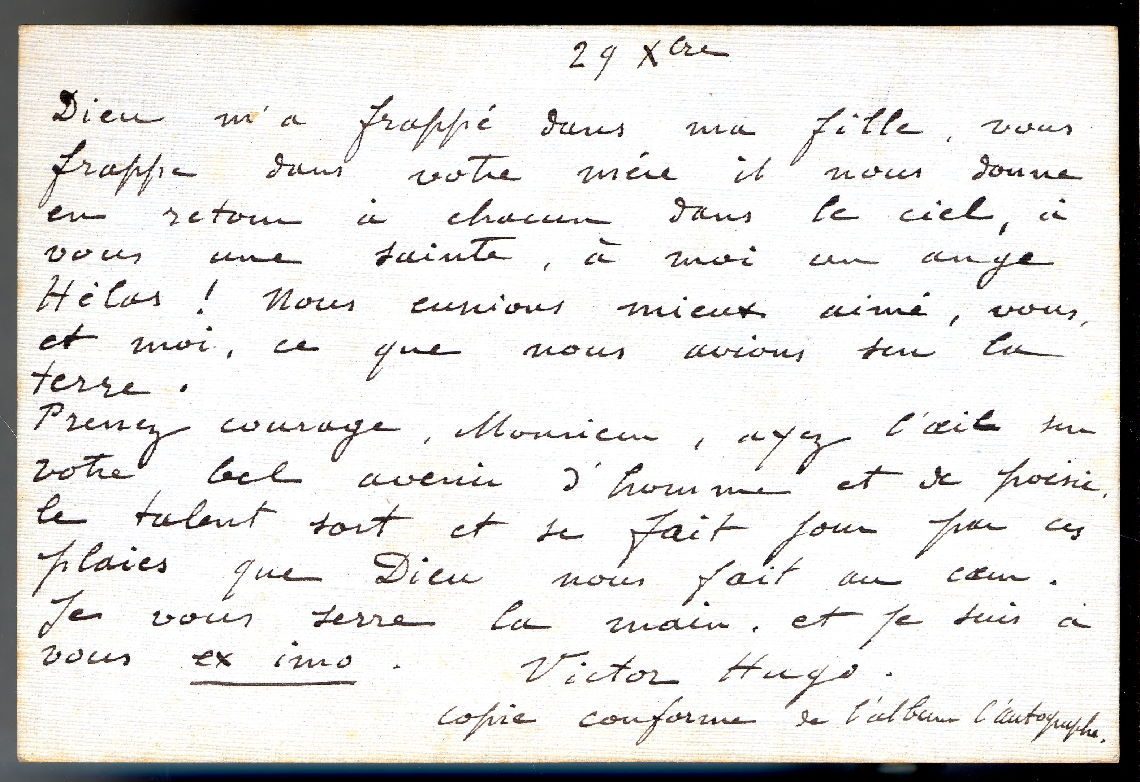 29 Xbre
Dieu m'a frappé dans ma fille, vous
frappe dans votre mère il nous donne
en retour à chacun dans le ciel, à
vous une sainte, à moi un ange
Hélas ! Nous eussions mieux aimé, vous,
et moi, ce que nous avions sur la
terre.
Prenez courage, Monsieur, ayez l'œil sur
votre bel avenir d'homme et de poésie,
le talent sort et se fait jour par ces
plaies que Dieu nous fait au cœur.
Je vous serre la main. et je suis à
vous ex imo. Victor Hugo.
copie conforme de l'album l'autographe.